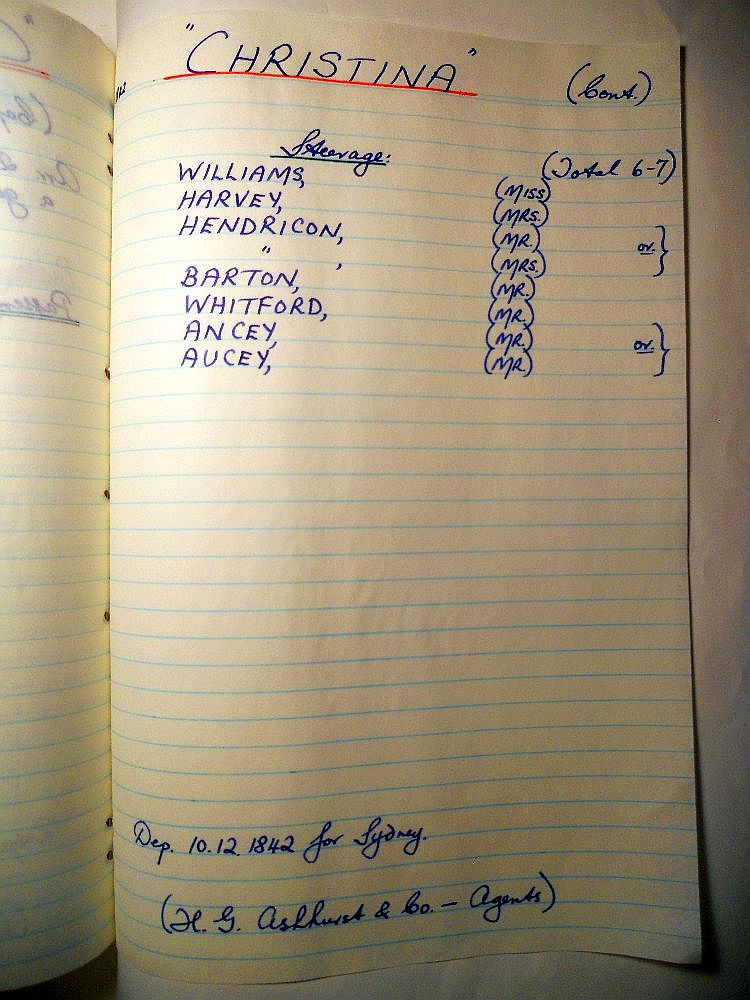 "CHRISTINA"
(Cont.)
Steerage:
(Total 6-7)
WILLIAMS, (MISS)
HARVEY, (MRS.)
HENDRICON, (MR.)
" , (MRS.) or. }
BARTON, (MR.)
WHITFORD, (MR.)
ANCEY, (MR.)
AUCEY, (MR.) or. }
Dep. 10.12.1842 for Sydney.
(H. G. Ashhurst & Co. — Agents)